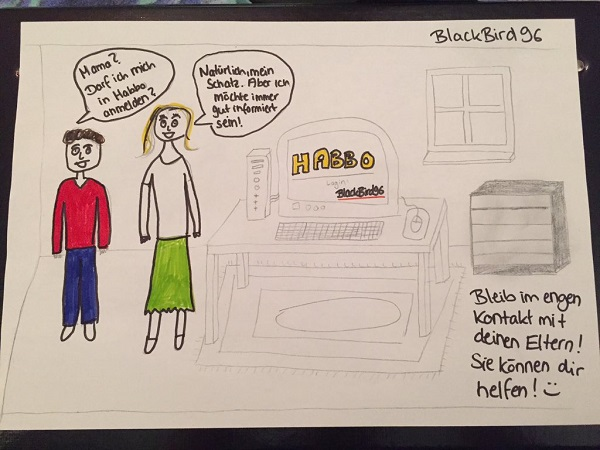 BlackBird96
Mama?
Darf ich mich
in Habbo
anmelden?
Natürlich, mein
Schatz. Aber ich
möchte immer
gut informiert
sein!
HABBO
Login:
BlackBird96
Bleib im engen
Kontakt mit
deinen Eltern!
Sie können dir
helfen! :)